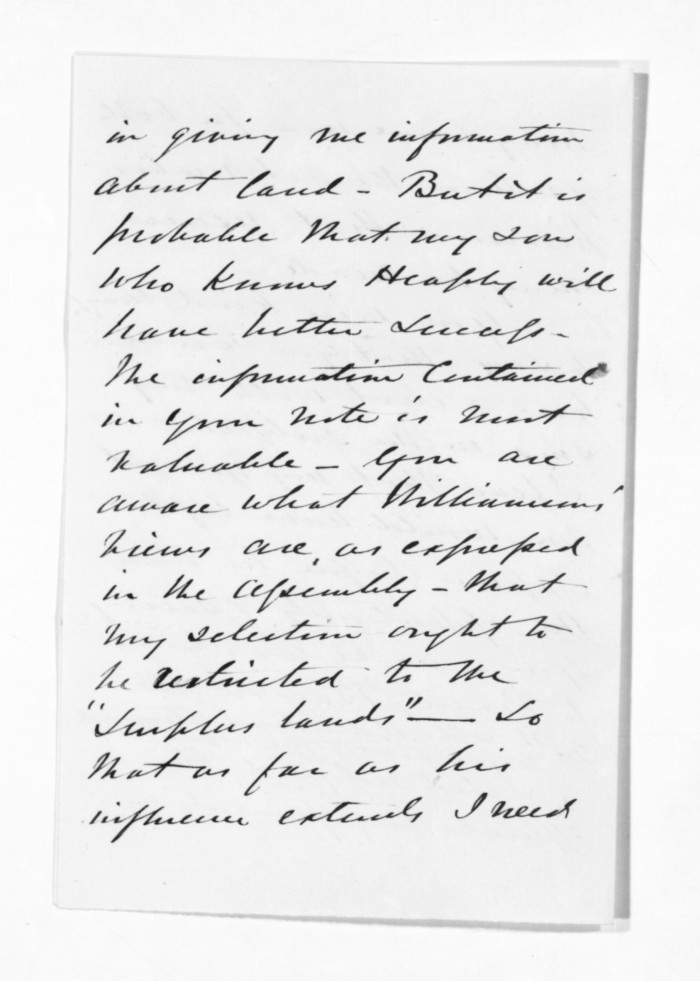 in giving me information
about land - But it is
probable that my son
who knows Heaphy will
have better success -
The information contained
in your note is most
valuable - You are
aware what Williamson's
views are, as expressed
in the Assembly - that
my selection ought to
be restricted to the
"Surplus lands" — So
that as far as his
influence extends I need